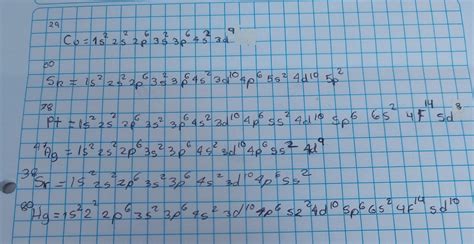 29
Cu = 1s² 2s² 2p⁶ 3s² 3p⁶ 4s² 3d⁹
50
Sn = 1s² 2s² 2p⁶ 3s² 3p⁶ 4s² 3d¹⁰ 4p⁶ 5s² 4d¹⁰ 5p²
78
Pt = 1s² 2s² 2p⁶ 3s² 3p⁶ 4s² 3d¹⁰ 4p⁶ 5s² 4d¹⁰ 5p⁶ 6s² 4F¹⁴ 5d⁸
47
Ag = 1s² 2s² 2p⁶ 3s² 3p⁶ 4s² 3d¹⁰ 4p⁶ 5s² 4d⁹
38
Sr = 1s² 2s² 2p⁶ 3s² 3p⁶ 4s² 3d¹⁰ 4p⁶ 5s²
80
Hg = 1s² 2² 2p⁶ 3s² 3p⁶ 4s² 3d¹⁰ 4p⁶ 5s² 4d¹⁰ 5p⁶ 6s² 4F¹⁴ 5d¹⁰